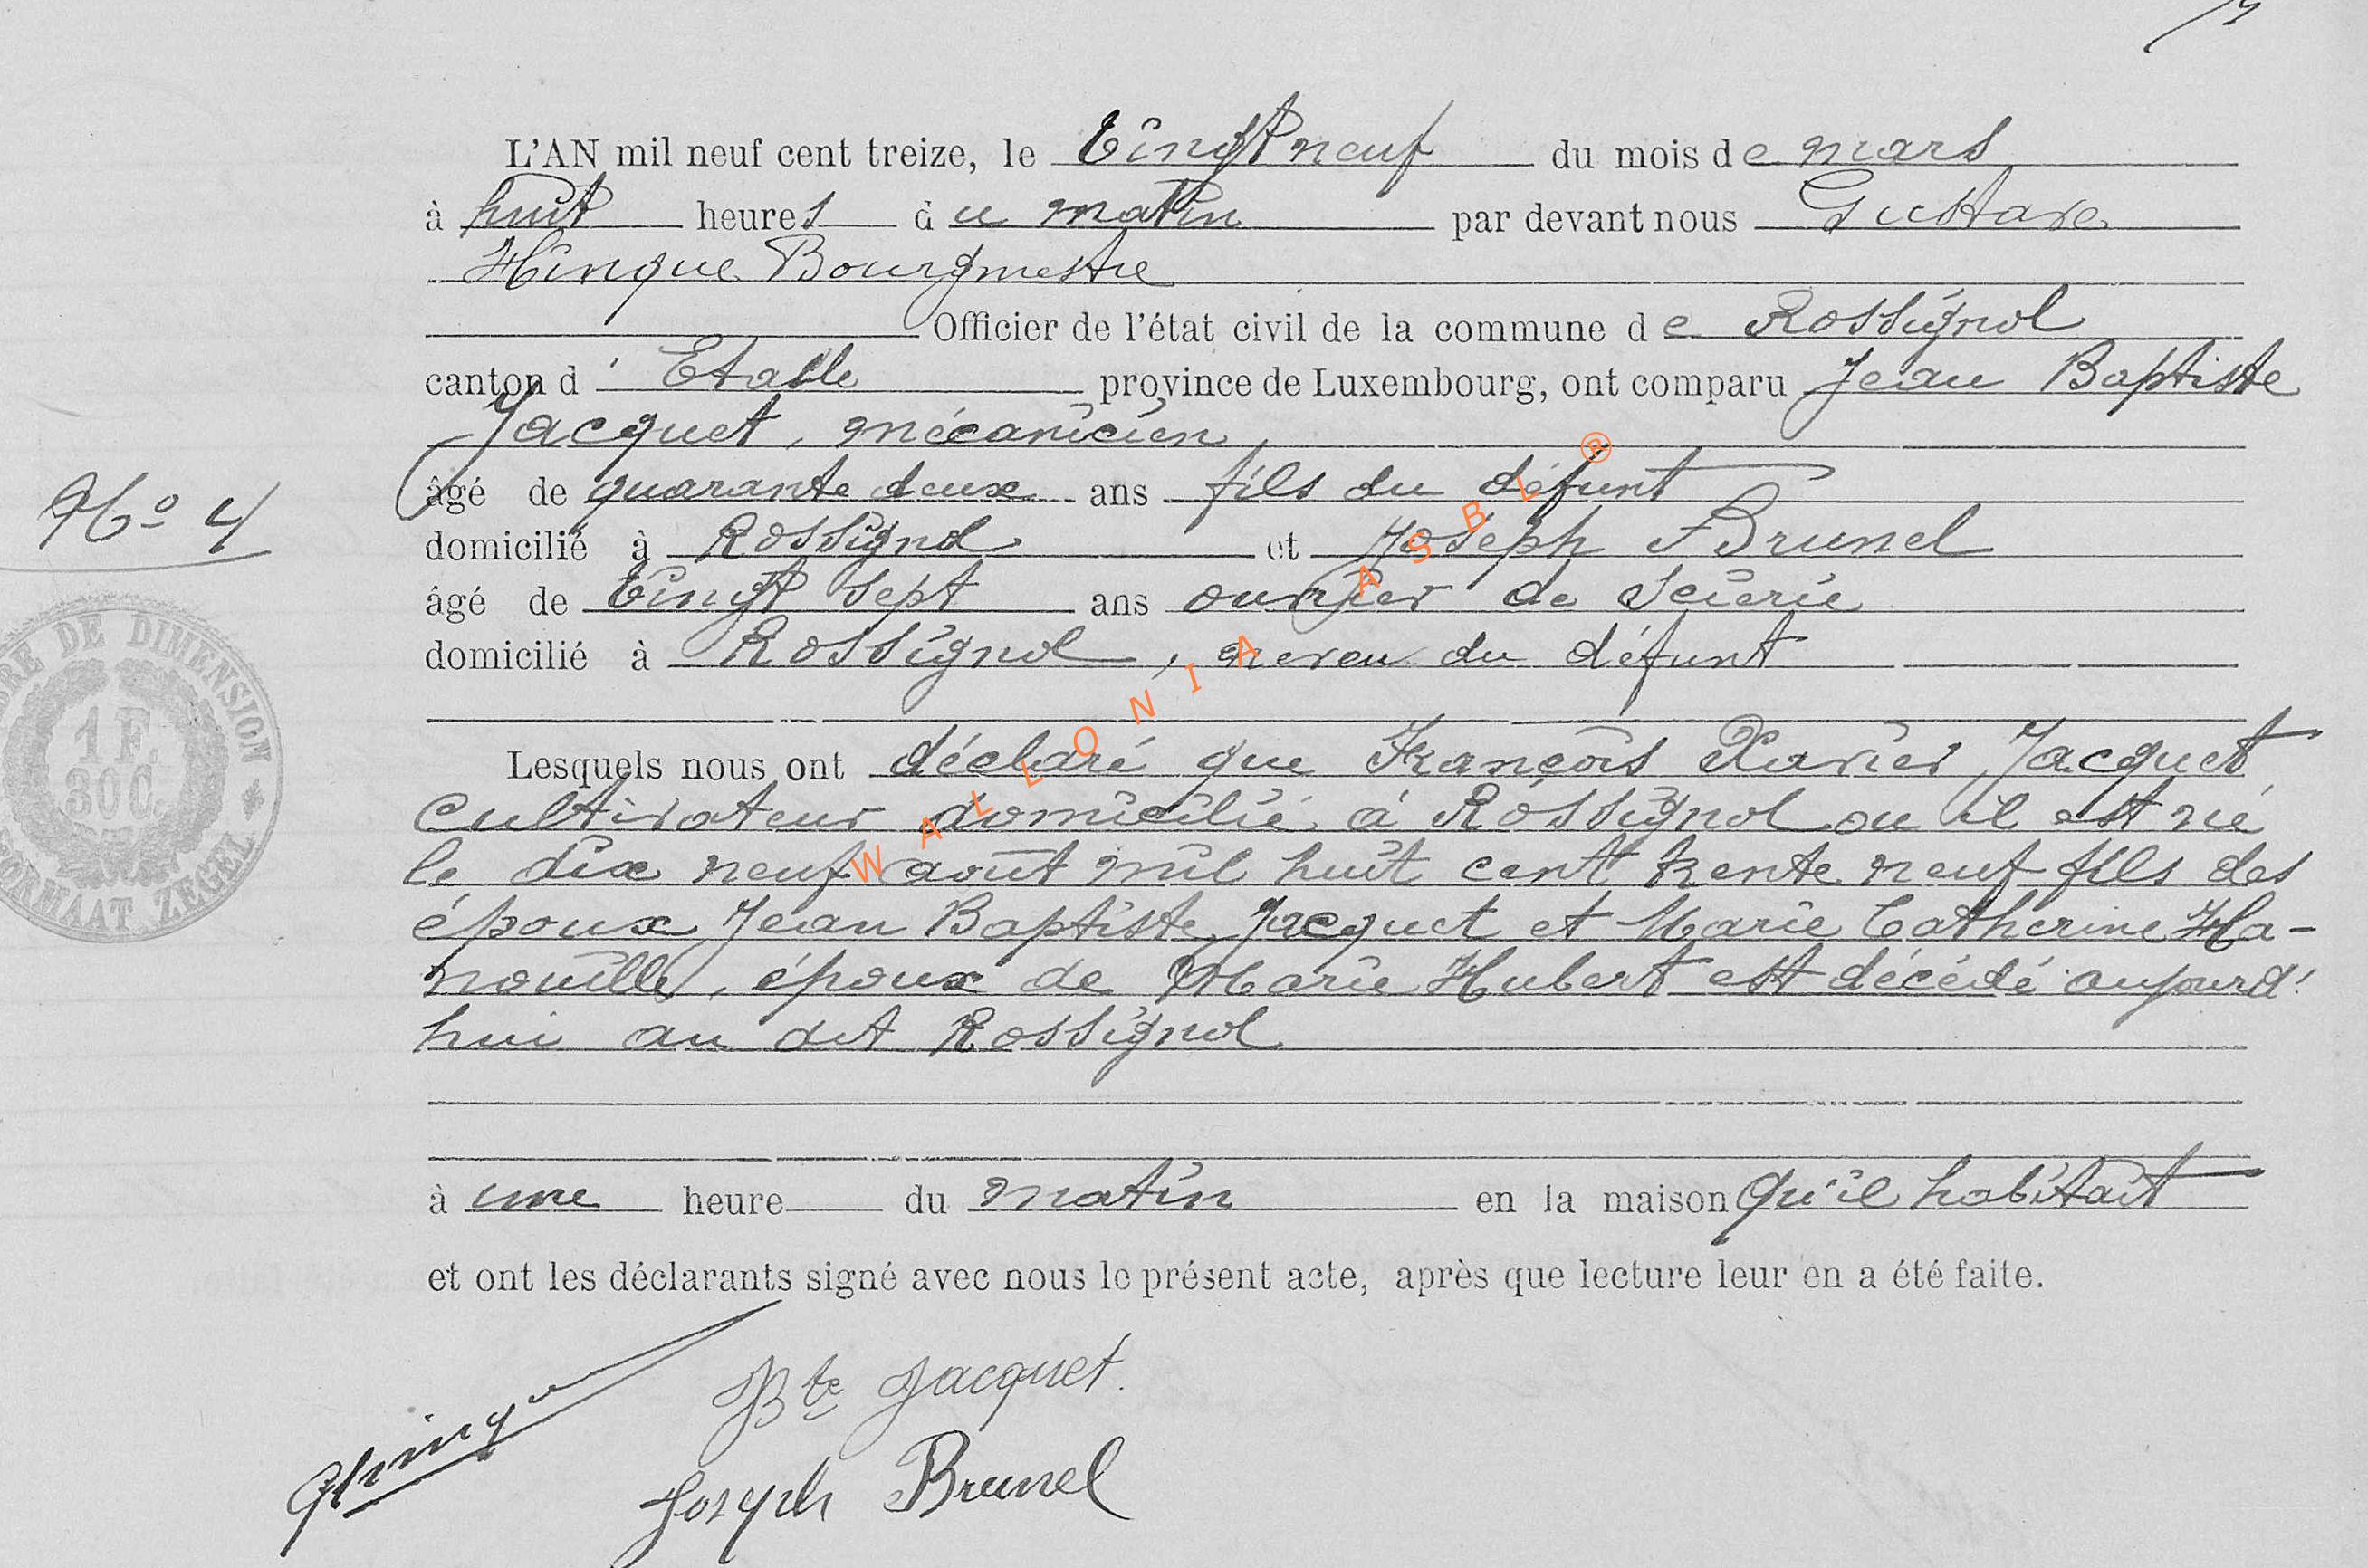 L'AN mil neuf cent treize, le Vingt neuf du mois de mars
à huit heures du matin par devant nous Gustave
Hinque Bourgmestre
Officier de l'état civil de la commune de Rossignol
canton d'Etalle province de Luxembourg, ont comparu Jean Baptiste
Jacquet, mécanicien,
âgé de quarante deux ans fils du défunt
N° 4
domicilié à Rossignol et Joseph Brunel
âgé de Vingt sept ans ouvrier de scierie
domicilié à Rossignol, neveu du défunt
TIMBRE DE DIMENSION
1 F.
30 C.
FORMAAT ZEGEL
WALLONIA ASBL ®
Lesquels nous ont déclaré que François Xavier Jacquet
cultivateur domicilié à Rossignol ou il est né
le dix neuf août mil huit cent trente neuf fils des
époux Jean Baptiste Jacquet et Marie Catherine Ha-
nouille, époux de Marie Hubert est décédé aujourd'
hui au dit Rossignol
à une heure du matin en la maison qu'il habitait
et ont les déclarants signé avec nous le présent acte, après que lecture leur en a été faite.
JBte Jacquet.
GHinque
Joseph Brunel